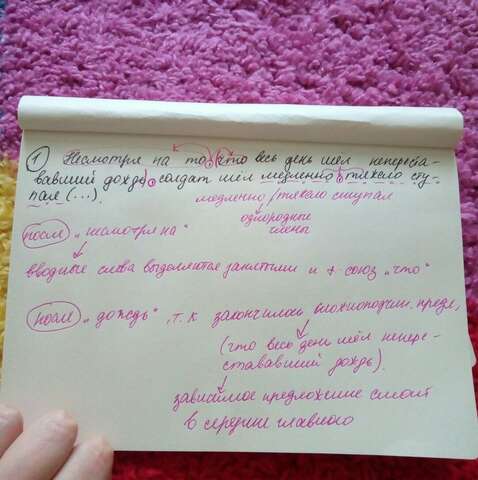 1) Несмотря на то, что весь день шёл непереста-
вавший дождь, солдат шёл медленно, тяжело сту-
пал (...).
медленно/тяжело ступал
однородные
члены
после „несмотря на"
вводные слова выделяются запятыми и + союз „что"
после „дождь", т.к закончилось сложноподчин. предл,
(что весь день шёл непере-
стававший дождь).
зависимое предложение стоит
в середине главного